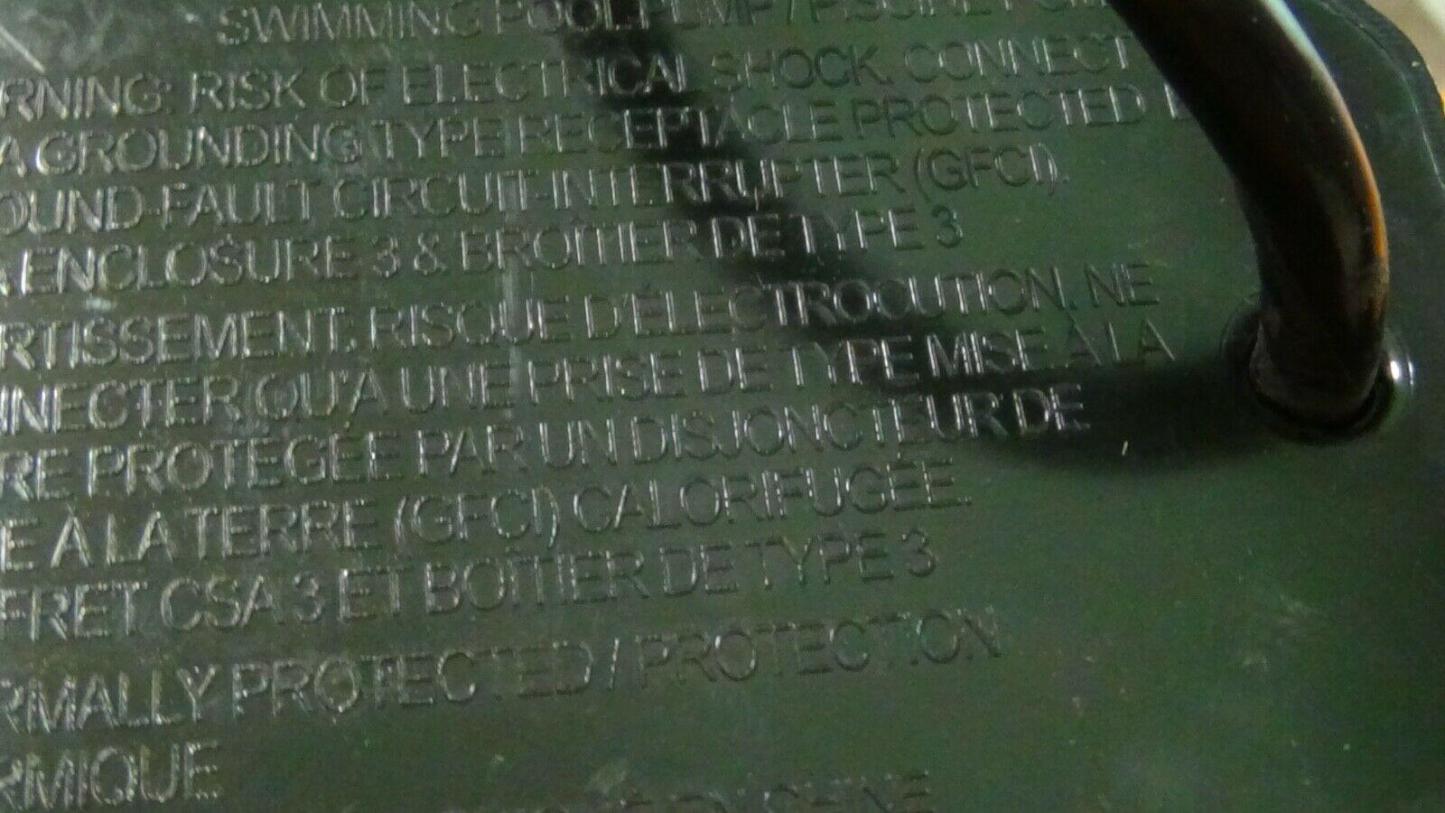 SWIMMING POOL PUMP / PISCINE
RNING: RISK OF ELECTRICAL SHOCK. CONNECT
A GROUNDING TYPE RECEPTACLE PROTECTED
OUND-FAULT CIRCUIT-INTERRUPTER (GFCI).
A ENCLOSURE 3 & BROITIER DE TYPE 3
RTISSEMENT, RISQUE D'ÉLECTROCUTION. NE
NNECTER QU'À UNE PRISE DE TYPE MISE À LA
RE PROTEGÉE PAR UN DISJONCTEUR DE
E À LA TERRE (GFCI) CALORIFUGÉE.
FRET CSA 3 ET BOÎTIER DE TYPE 3
RMALLY PROTECTED / PROTECTION
RMIQUE
EN CHINE